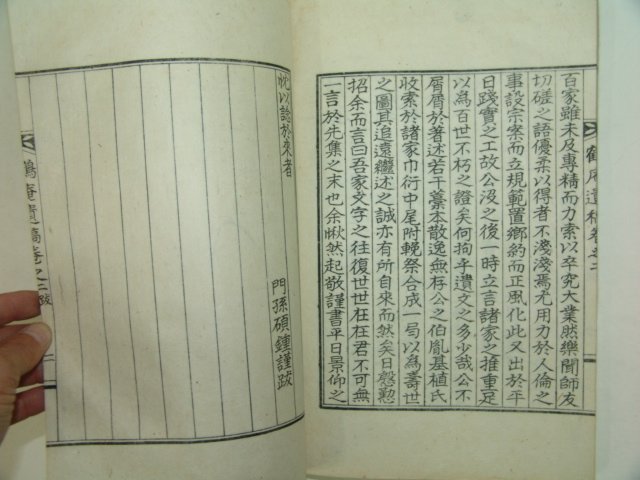 百家雖未及專精而力索以卒究大業然樂聞師友
切磋之語優柔以得者不淺淺焉尤用力於人倫之
事設宗案而立規範置鄉約而正風化此又出於平
日踐實之工故公沒之後一時立言諸家之推重足
以為百世不朽之證矣何拘乎遺文之多少哉公不
屑屑於著述若干藁本散逸無存公之伯胤基植氏
收索於諸家巾衍中尾附輓祭合成一局以為壽世
之圖其追遠繼述之誠亦有所自來而然矣日磬懃
招余而言曰吾家文字之往復世世枉枉君不可無
一言於先集之末也余愀然起敬謹書平日景仰之
鶴庵遺稿卷之二
忱以諗於來者
門孫碩鍾謹跋
鶴庵遺稿卷之二 跋